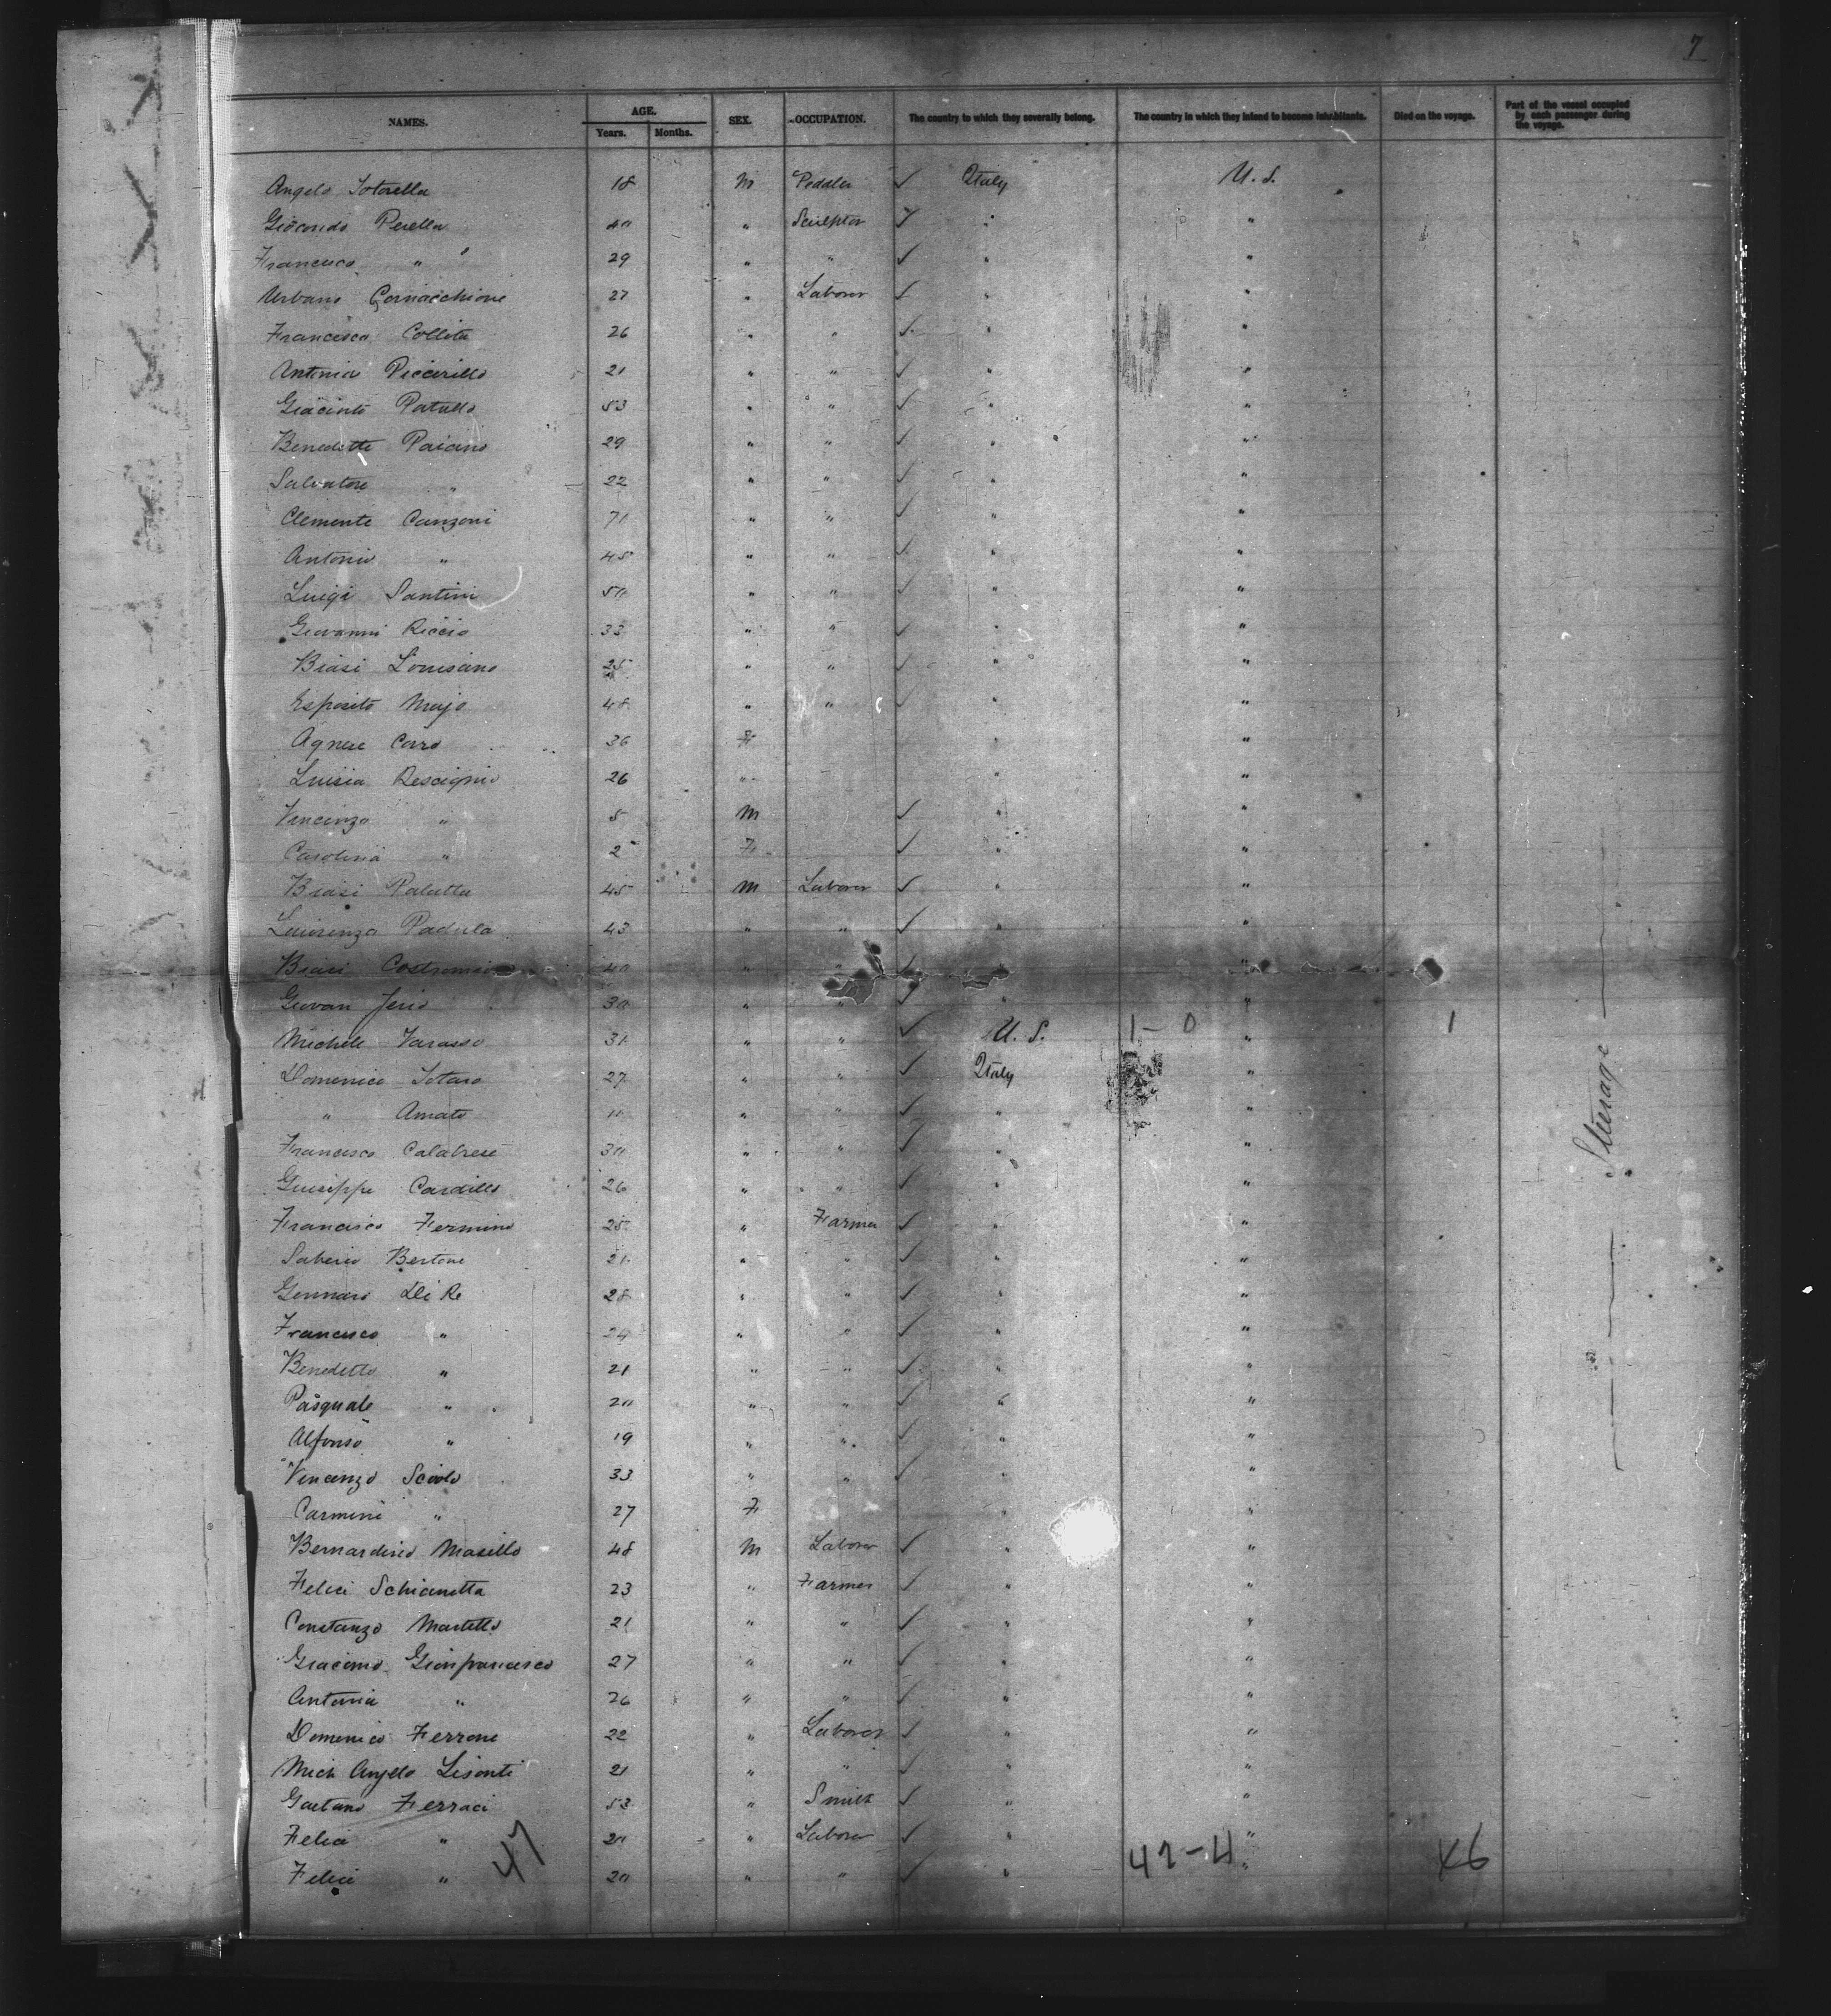 7
NAMES. AGE. Years. Months. SEX. OCCUPATION. The country to which they severally belong. The country in which they intend to become inhabitants. Died on the voyage. Part of the vessel occupied by each passenger during the voyage.
Angelo Totorella 18 M Peddler ✓ Italy U. S.
Giocondo Perella 40 " Sculptor ✓ " "
Francesco " 29 " " ✓ " "
Urbano Cornacchione 27 " Laborer ✓ " "
Francesco Colleta 26 " " ✓ " "
Antonio Piccirillo 21 " " ✓ " "
Giacinto Patullo 53 " " ✓ " "
Benedetto Paiano 29 " " ✓ " "
Salvatore " 22 " " ✓ " "
Clemente Canzoni 71 " " ✓ " "
Antonio " 45 " " ✓ " "
Luigi Santini 50 " " ✓ " "
Giovanni Riccio 33 " " ✓ " "
Biasi Louisano 25 " " ✓ " "
Esposito Majo 48 " " ✓ " "
Agnese Corro 36 F " "
Luisia Rescignio 26 " " "
Vincenzo " 5 M ✓ " "
Carolina " 2 F ✓ " "
Biasi Palatta 45 M Laborer ✓ " "
Laurenzo Padula 43 " " ✓ " "
Biasi 40 " " ✓ "
Giovan Jerio 30 " " ✓ " "
Michele Varasso 31 " " ✓ U. S. 1 - 0 " 1
Domenico Totaro 27 " " ✓ Italy "
" Amato 11 " " ✓ " "
Francesco Calabrese 30 " " ✓ " "
Guiseppe Cardillo 26 " " ✓ " "
Francisco Fermino 25 " Farmer ✓ " "
Saberio Bertone 21 " " ✓ " "
Gennaro Di Re 28 " " ✓ " "
Francesco " 24 " " ✓ " "
Benedetto " 21 " " ✓ " "
Pasquale " 20 " " ✓ " "
Alfonso " 19 " " ✓ " "
Vincenzo Sciolo 33 " " ✓ " "
Carmini " 27 F " "
Bernardino Masillo 48 M Laborer ✓ " "
Felici Schianetta 23 " Farmer ✓ " "
Constanzo Martello 21 " " ✓ " "
Giacomo Gionfrancesco 27 " " ✓ " "
Antonio " 26 " " ✓ " "
Domenico Ferrone 22 " Laborer ✓ " "
Mich Angelo Lisonti 21 " " ✓ " "
Gaetano Ferraci 53 " Smith ✓ " "
Felici " 20 " Laborer ✓ " "
Felici " 20 " " ✓ " "
47 42-4 46
Steerage